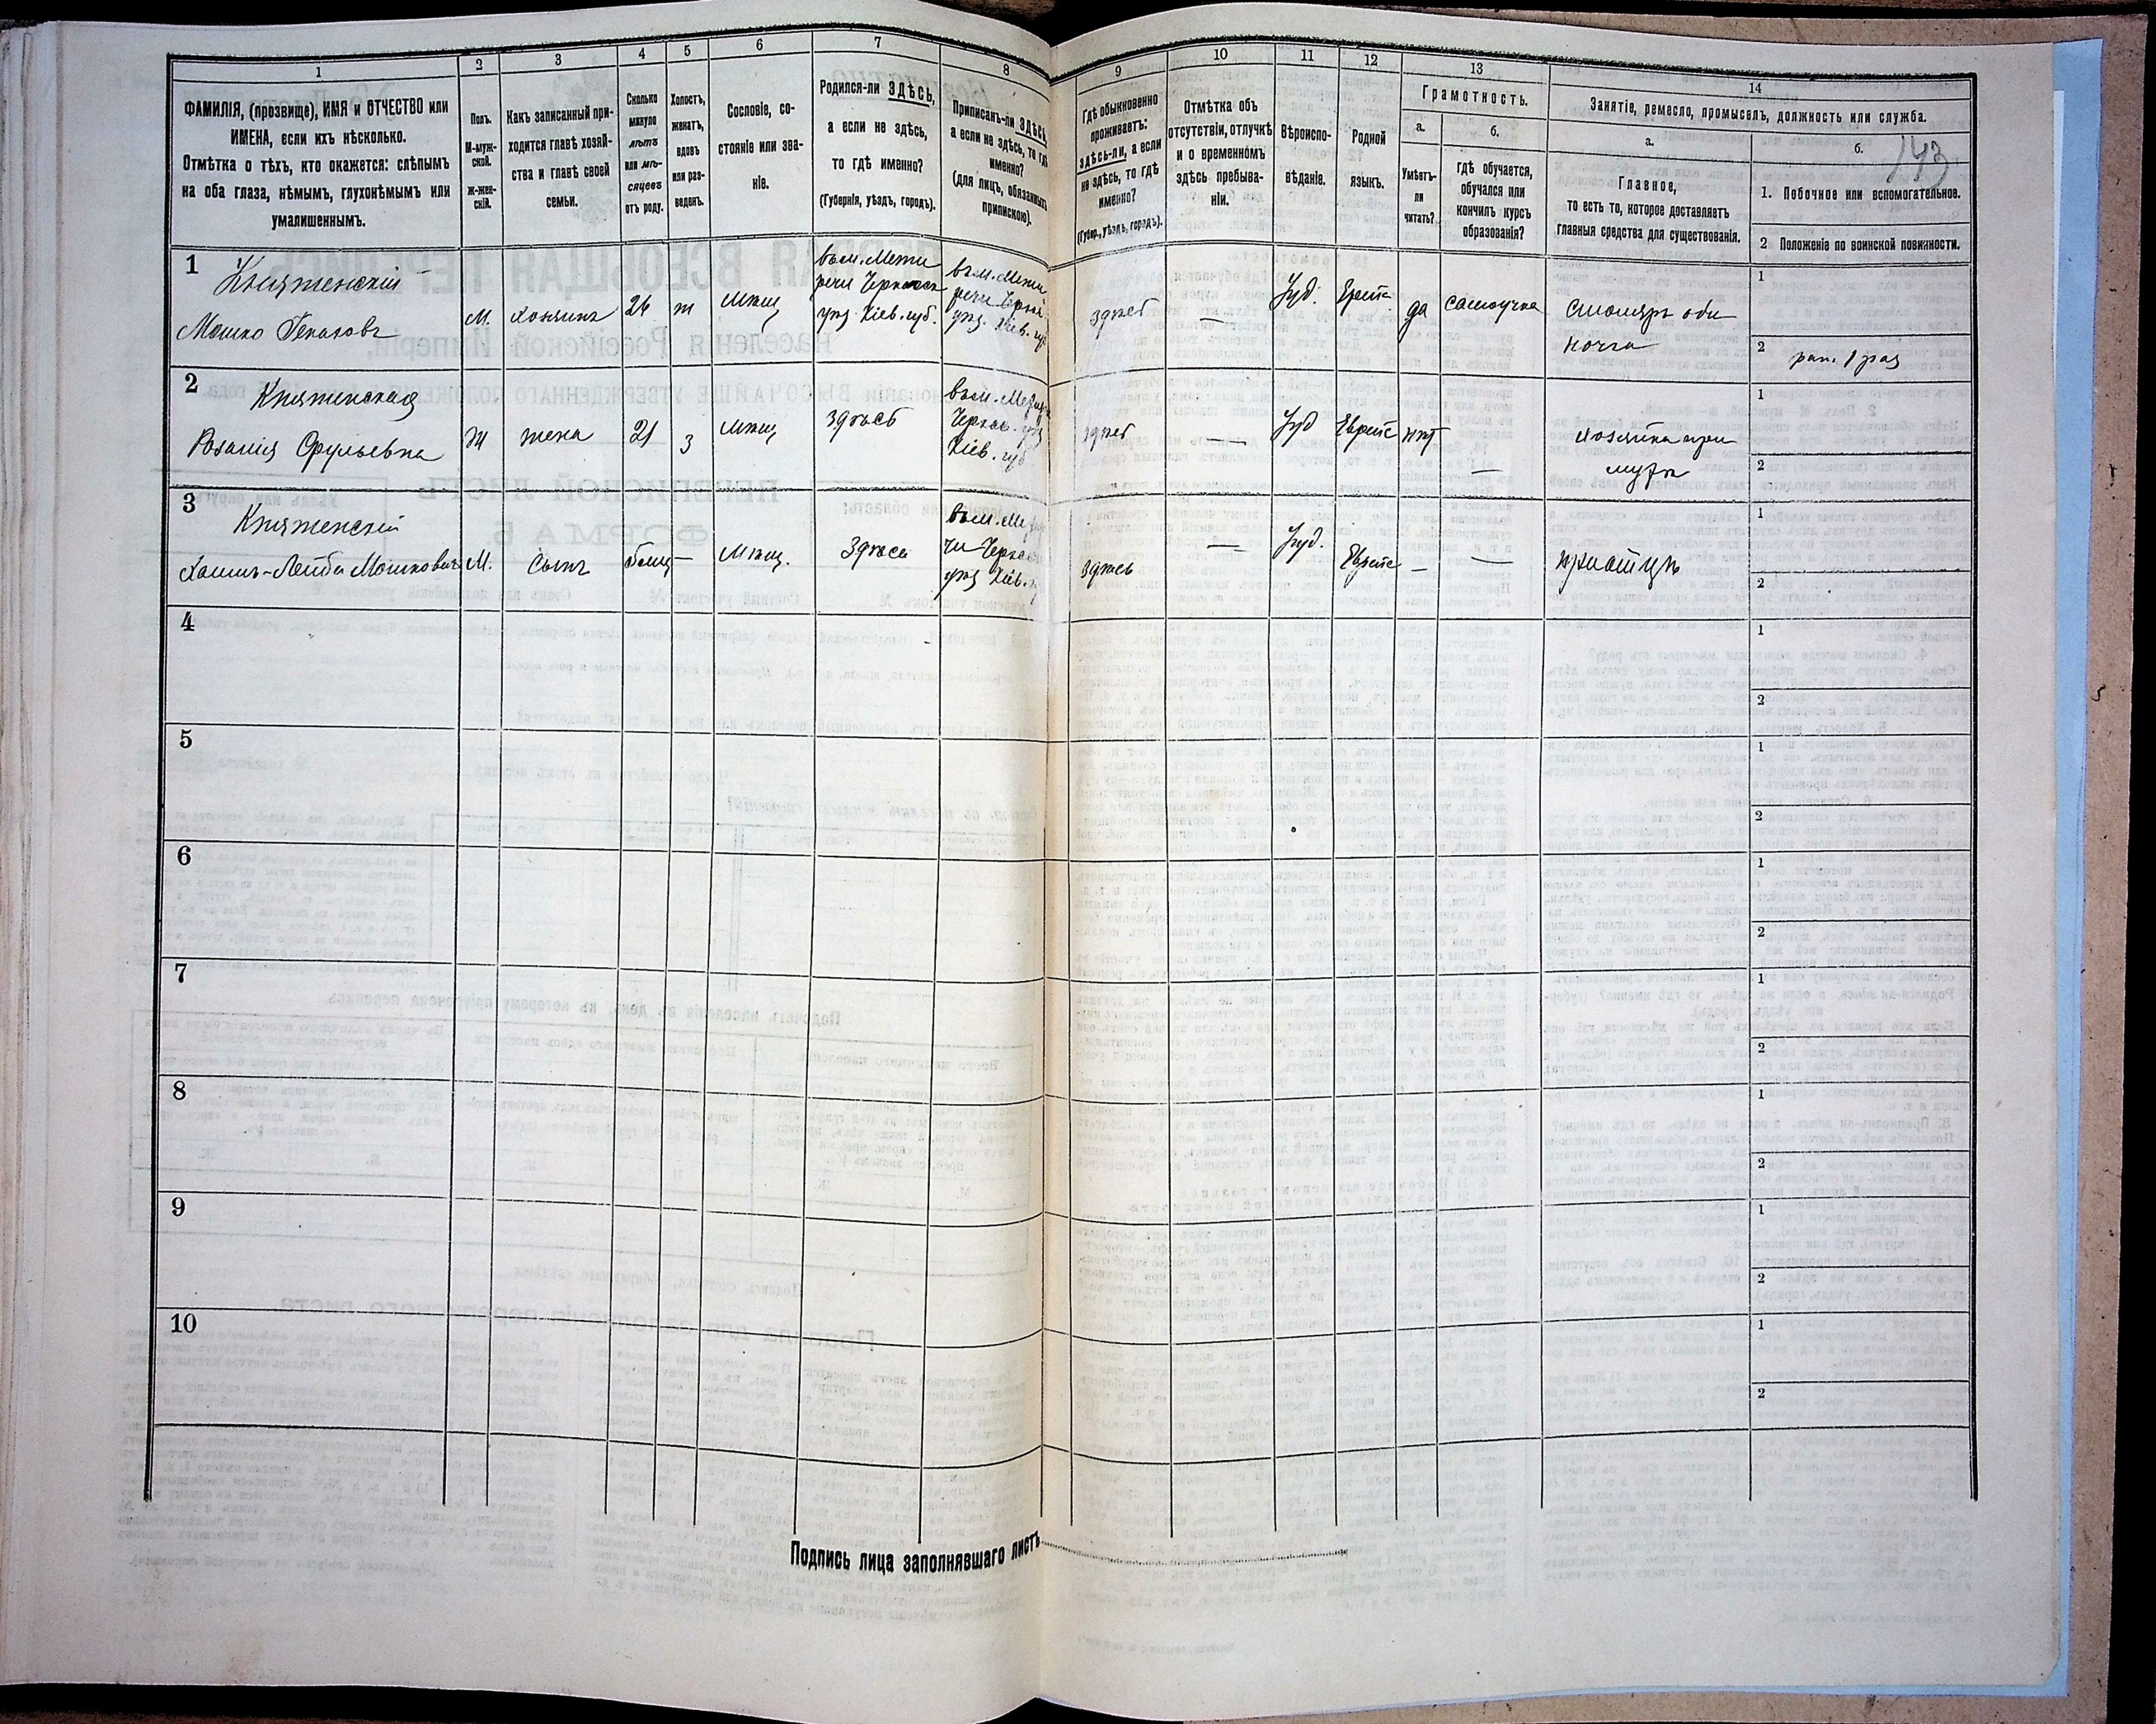 1
2
3
4
5
6
7
8
9
10
11
12
13
14
ФАМИЛІЯ, (прозвище), ИМЯ и ОТЧЕСТВО или
ИМЕНА, если ихъ нѣсколько.
Отмѣтка о тѣхъ, кто окажется: слѣпымъ
на оба глаза, нѣмымъ, глухонѣмымъ или
умалишеннымъ.
Полъ.
М-муж-
ской.
Ж-жен-
скій.
Какъ записанный при-
ходится главѣ хозяй-
ства и главѣ своей
семьи.
Сколько
минуло
лѣтъ
или мѣ-
сяцевъ
отъ роду.
Холостъ,
женатъ,
вдовъ
или раз-
веденъ.
Сословіе, со-
стояніе или зва-
ніе.
Родился-ли ЗДѢСЬ,
а если не здѣсь,
то гдѣ именно?
(Губернія, уѣздъ, городъ).
Приписанъ-ли ЗДѢСЬ,
а если не здѣсь, то гдѣ
именно?
(для лицъ, обязанныхъ
припискою).
Гдѣ обыкновенно
проживаетъ:
здѣсь-ли, а если
не здѣсь, то гдѣ
именно?
(Губер., уѣздъ, городъ).
Отмѣтка объ
отсутствіи, отлучкѣ
и о временномъ
здѣсь пребыва-
ніи.
Вѣроиспо-
вѣданіе.
Родной
языкъ.
Грамотность.
а.
б.
Умѣетъ-
ли
читать?
Гдѣ обучается,
обучался или
кончилъ курсъ
образованія?
Занятіе, ремесло, промыселъ, должность или служба.
а.
Главное,
то есть то, которое доставляетъ
главныя средства для существованія.
б.
143
1. Побочное или вспомогательное.
2 Положеніе по воинской повинности.
1
Княженскій
Мошко
М.
хозяинъ
26
ж
Мѣщ
въ м.
уѣз. Кіев. губ.
въ м.
здѣсь
—
Іуд.
да
самоучка
столяръ оди
ночка
1
2
2
Княженская
Розалія
Ж
жена
21
з
Мѣщ
здѣсь
въ м.
Кіев. губ
здѣсь
—
Іуд
Еврейс
нѣт
—
хозяйка при
мужѣ
1
2
3
Княженскій
М.
Сынъ
—
Мѣщ.
Здѣсь
въ м.
уѣз Кіев.
здѣсь
—
Іуд.
Еврейс
—
—
при отцѣ
1
2
4
1
2
5
1
2
6
1
2
7
1
2
8
1
2
9
1
2
10
1
2
Подпись лица заполнявшаго листъ